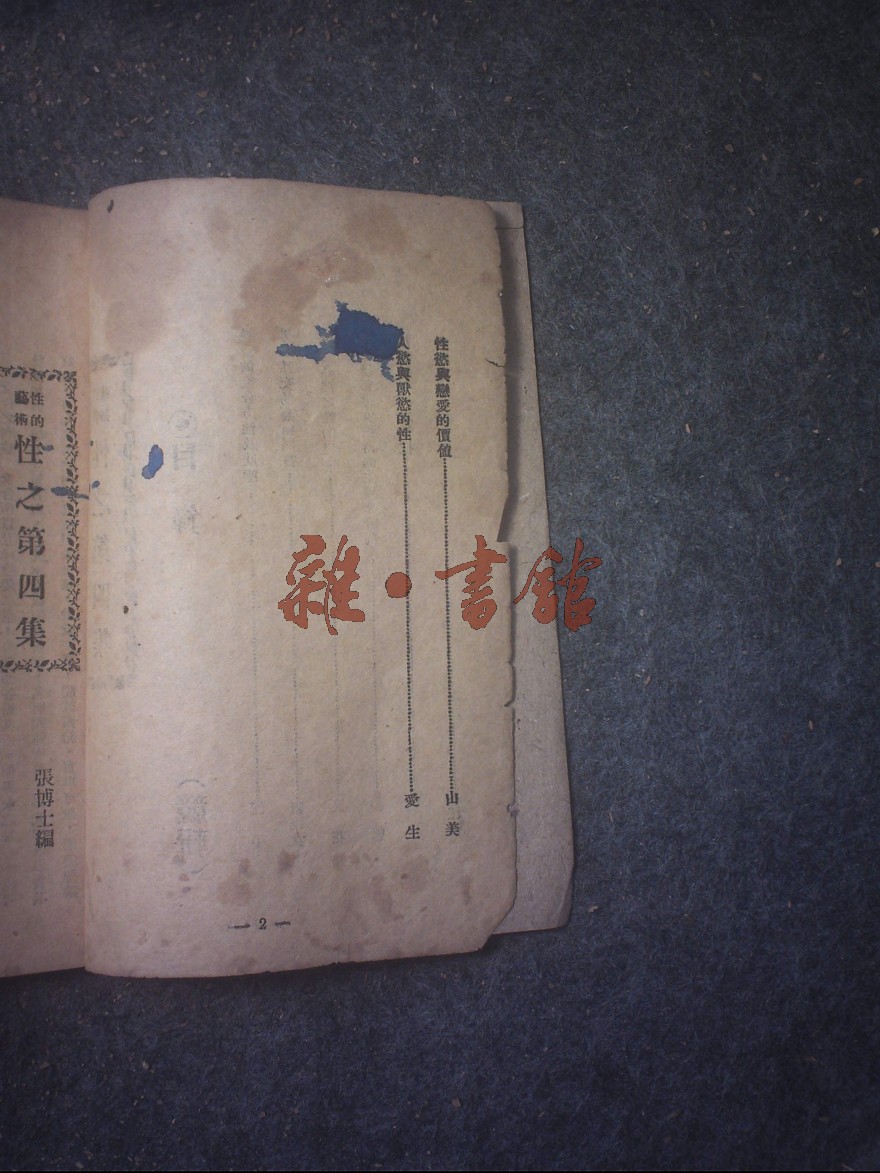 性慾與戀愛的價値……山美
人慾與獸慾的性……愛生
— 2 —
性的
藝術
性之第四集
張博士編
雜·書館